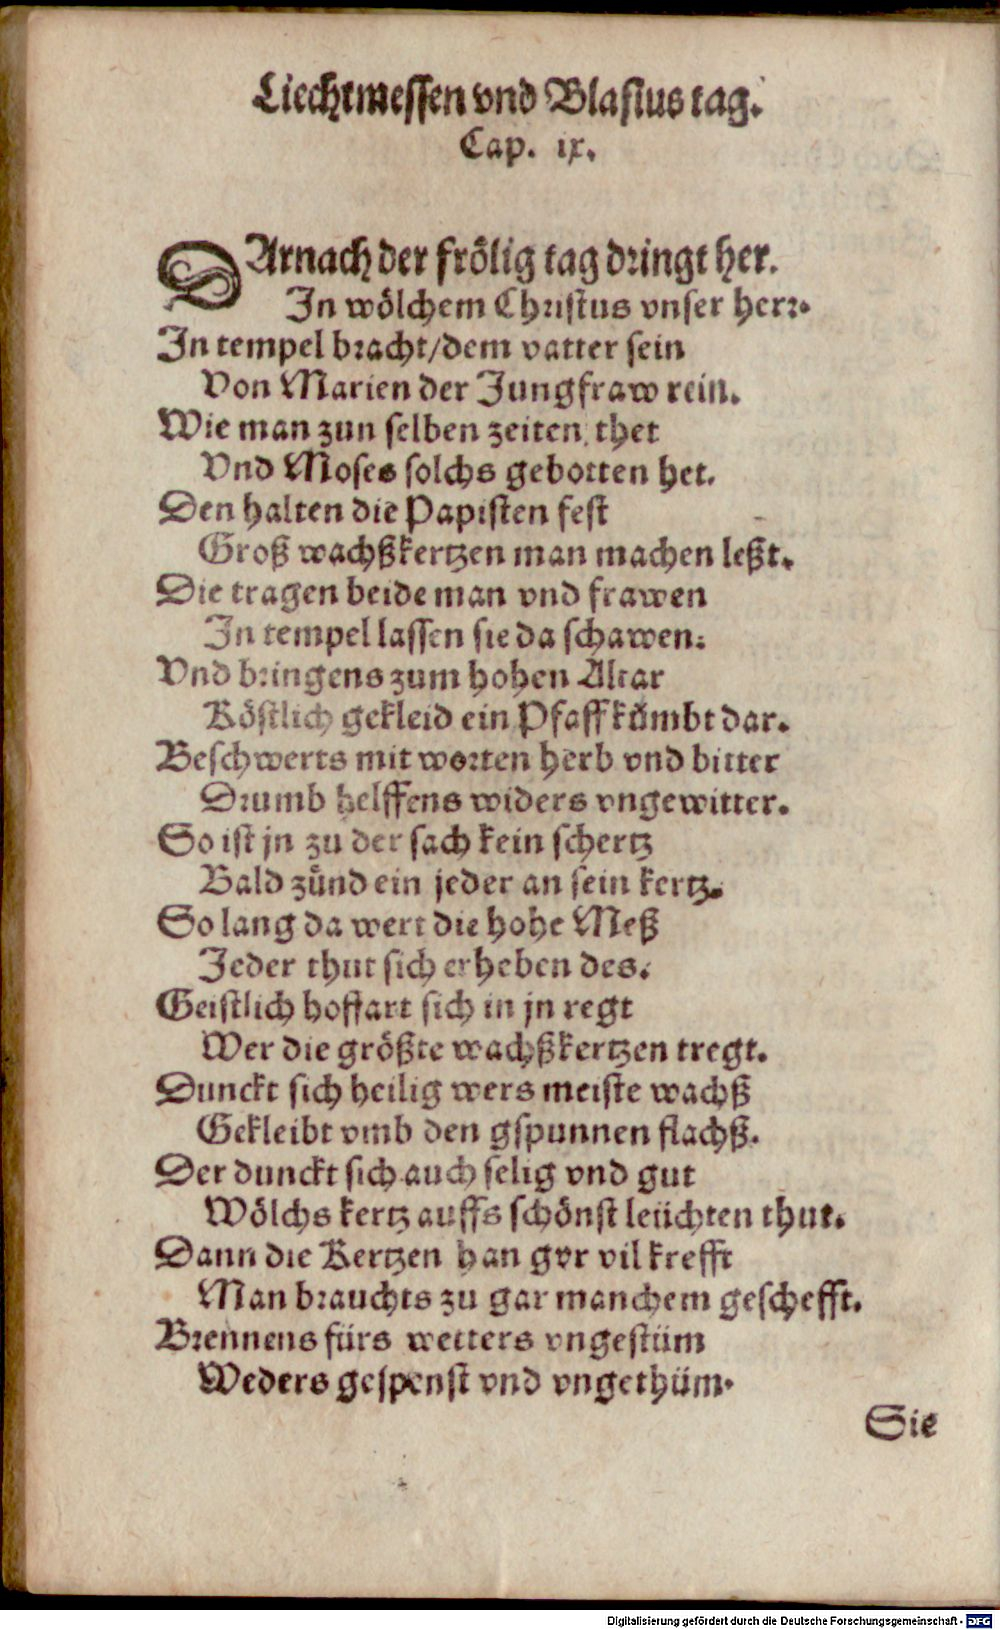 Liechtmessen vnd Blasius tag.
Cap. ix.
DArnach der frölig tag dringt her.
In wölchem Christus vnser herr.
In tempel bracht/dem vatter sein
Von Marien der Jungfraw rein.
Wie man zun selben zeiten thet
Vnd Moses solchs gebotten het.
Den halten die Papisten fest
Groß wachßkertzen man machen leßt.
Die tragen beide man vnd frawen
In tempel lassen sie da schawen.
Vnd bringens zum hohen Altar
Köstlich gekleid ein Pfaff kümbt dar.
Beschwerts mit worten herb vnd bitter
Drumb helffens widers vngewitter.
So ist jn zu der sach kein schertz
Bald zünd ein jeder an sein kertz.
So lang da wert die hohe Meß
Jeder thut sich erheben des.
Geistlich hoffart sich in jn regt
Wer die größte wachßkertzen tregt.
Dunckt sich heilig wers meiste wachß
Gekleibt vmb den gspunnen flachß.
Der dunckt sich auch selig vnd gut
Wölchs kertz auffs schönst leüchten thut.
Dann die Kertzen han gor vil krefft
Man brauchts zu gar manchem geschefft.
Brennens fürs wetters vngestüm
Weders gespenst vnd vngethüm.
Sie
Digitalisierung gefördert durch die Deutsche Forschungsgemeinschaft - DFG